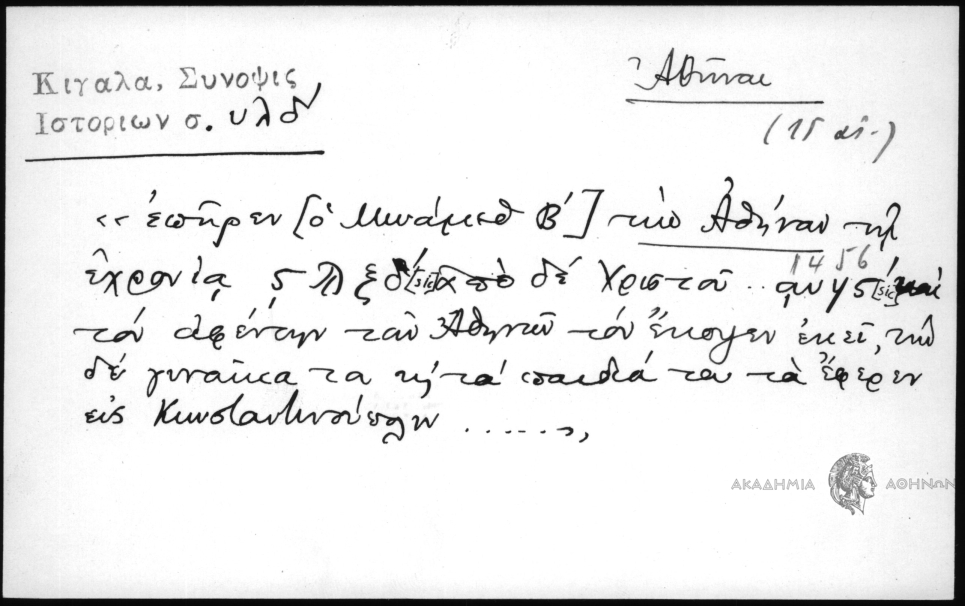 Κιγαλα, Συνοψις
Ιστοριων σ. υλδ'
Ἀθῆναι
(15 αἰ.)
«ἐπῆρεν [ὁ Μωάμεθ Β'] τὴν Ἀθήναν τῇ
ἐχρονίᾳ ςλξδ' [sic] ἀπὸ δέ Χριστοῦ .. αυνς' [sic] καὶ
1456
τὸν ἀφέντην τῶν Ἀθηνῶν τὸν ἔκοψεν ἐκεῖ, τὴν
δέ γυναῖκα του κ' τὰ παιδιά του τὰ ἔφερεν
εἰς Κωνσταντινούπολιν .......,
ΑΚΑΔΗΜΙΑ ΑΘΗΝΩΝ